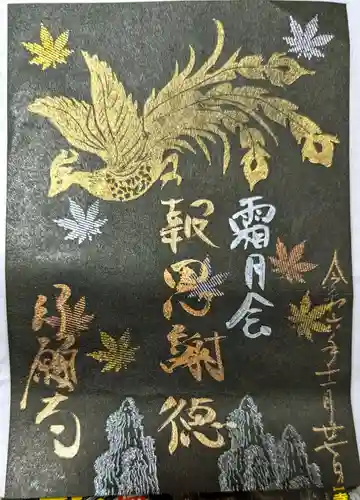 令和六年十一月廿日
霜月会
報恩謝徳
願寺